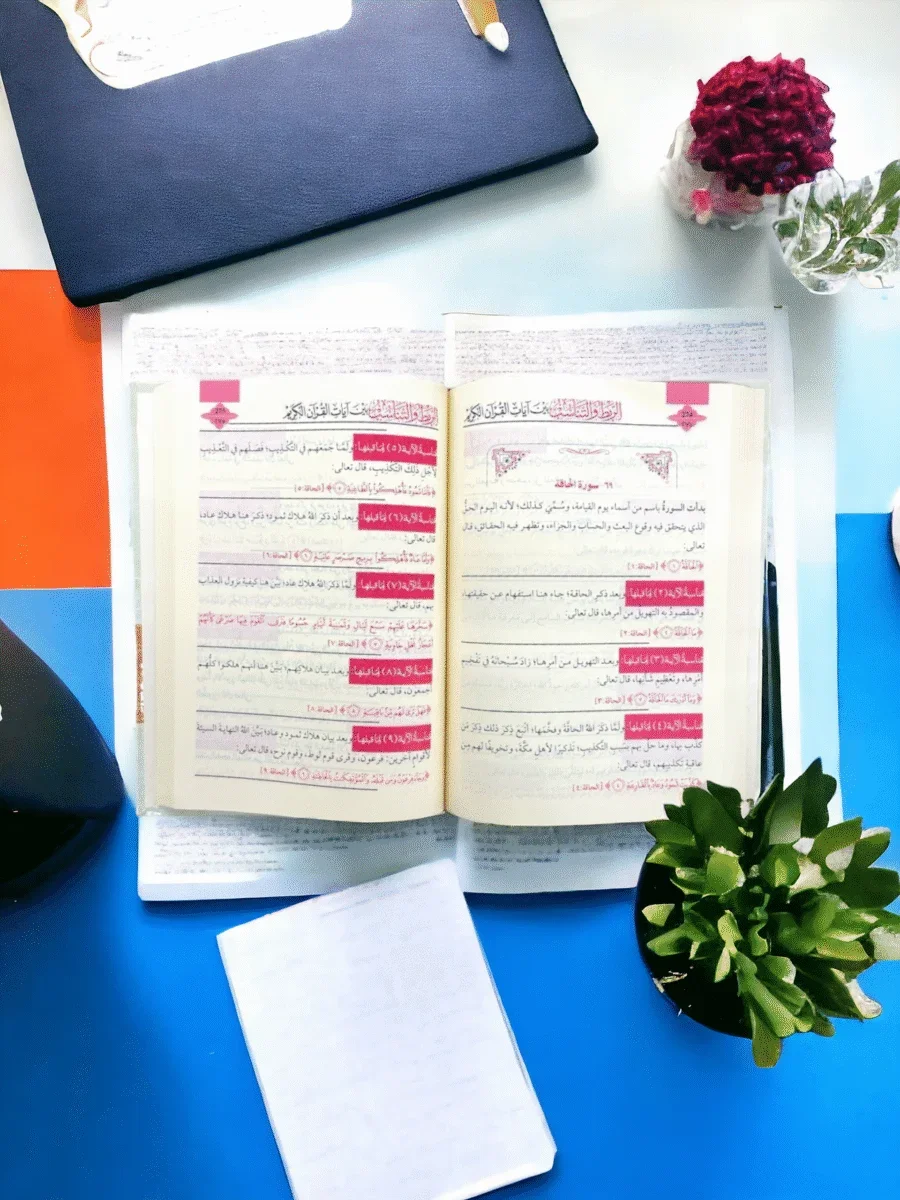 الربط والتناسب بين آيات القرآن الكريم
٦٩ سورة الحاقة
بدأت السورة باسم من أسماء يوم القيامة، وسُمِّي كذلك؛ لأنه اليوم الحقُّ
الذي يتحقق فيه وقوع البعث والحساب والجزاء، وتظهر فيه الحقائق، قال
تعالى:
﴿الْحَاقَّةُ ۝١﴾ [الحاقة:١]
مناسبة الآية (٢) لما قبلها: وبعد ذكر الحاقة؛ جاء هنا استفهام عن حقيقتها،
والمقصودُ به التهويل من أمرها، قال تعالى:
﴿مَا الْحَاقَّةُ ۝٢﴾ [الحاقة:٢]
مناسبة الآية (٣) لما قبلها: وبعد التهويل من أمرها؛ زادَ سُبْحَانَهُ في تفخيم
أمرِها، وتعظيم شأنها، قال تعالى:
﴿وَمَا أَدْرَاكَ مَا الْحَاقَّةُ ۝٣﴾ [الحاقة:٣]
مناسبة الآية (٤) لما قبلها: ولمَّا ذكرَ اللهُ الحاقَّةَ وفخَّمها؛ أتْبعَ ذِكرَ ذلك ذِكرَ مَن
كذب بها، وما حل بهم بسَببِ التكذيب؛ تذكيرًا لأهلِ مكَّةَ، وتخويفًا لهم مِن
عاقبةِ تكذيبِهم، قال تعالى:
﴿كَذَّبَتْ ثَمُودُ وَعَادٌ بِالْقَارِعَةِ ۝٤﴾ [الحاقة:٤]
الربط والتناسب بين آيات القرآن الكريم
مناسبة الآية (٥) لما قبلها: ولَمَّا جَمَعَهم في التَّكذيبِ؛ فصَلهم في التَّعذيبِ
لأجلِ ذلك التكذيبِ، قال تعالى:
﴿فَأَمَّا ثَمُودُ فَأُهْلِكُوا بِالطَّاغِيَةِ ۝٥﴾ [الحاقة:٥]
مناسبة الآية (٦) لما قبلها: وبعد أن ذكرَ اللهُ هلاكَ ثمود؛ ذكرَ هنا هلاكَ عاد،
قال تعالى:
﴿وَأَمَّا عَادٌ فَأُهْلِكُوا بِرِيحٍ صَرْصَرٍ عَاتِيَةٍ ۝٦﴾ [الحاقة:٦]
مناسبة الآية (٧) لما قبلها: ولمَّا ذكرَ اللهُ هلاكَ عاد؛ بيَّنَ هنا كيفيةَ نزولِ العذابِ
بهم، قال تعالى:
﴿سَخَّرَهَا عَلَيْهِمْ سَبْعَ لَيَالٍ وَثَمَانِيَةَ أَيَّامٍ حُسُومًا فَتَرَى الْقَوْمَ فِيهَا صَرْعَى كَأَنَّهُمْ
أَعْجَازُ نَخْلٍ خَاوِيَةٍ ۝٧﴾ [الحاقة:٧]
مناسبة الآية (٨) لما قبلها: وبعد بيان هلاكِهم؛ بَيَّنَ هنا أنهم هلكوا كلُّهم
أجمعون، قال تعالى:
﴿فَهَلْ تَرَى لَهُمْ مِنْ بَاقِيَةٍ ۝٨﴾ [الحاقة:٨]
مناسبة الآية (٩) لما قبلها: وبعد بيان هلاك ثمود وعاد؛ بيَّنَ اللهُ النهايةَ السيئةَ
لأقوامٍ آخرين: فرعون، وقرى قوم لوط، وقوم نوح، قال تعالى:
﴿وَجَاءَ فِرْعَوْنُ وَمَنْ قَبْلَهُ وَالْمُؤْتَفِكَاتُ بِالْخَاطِئَةِ ۝٩﴾ [الحاقة:٩]